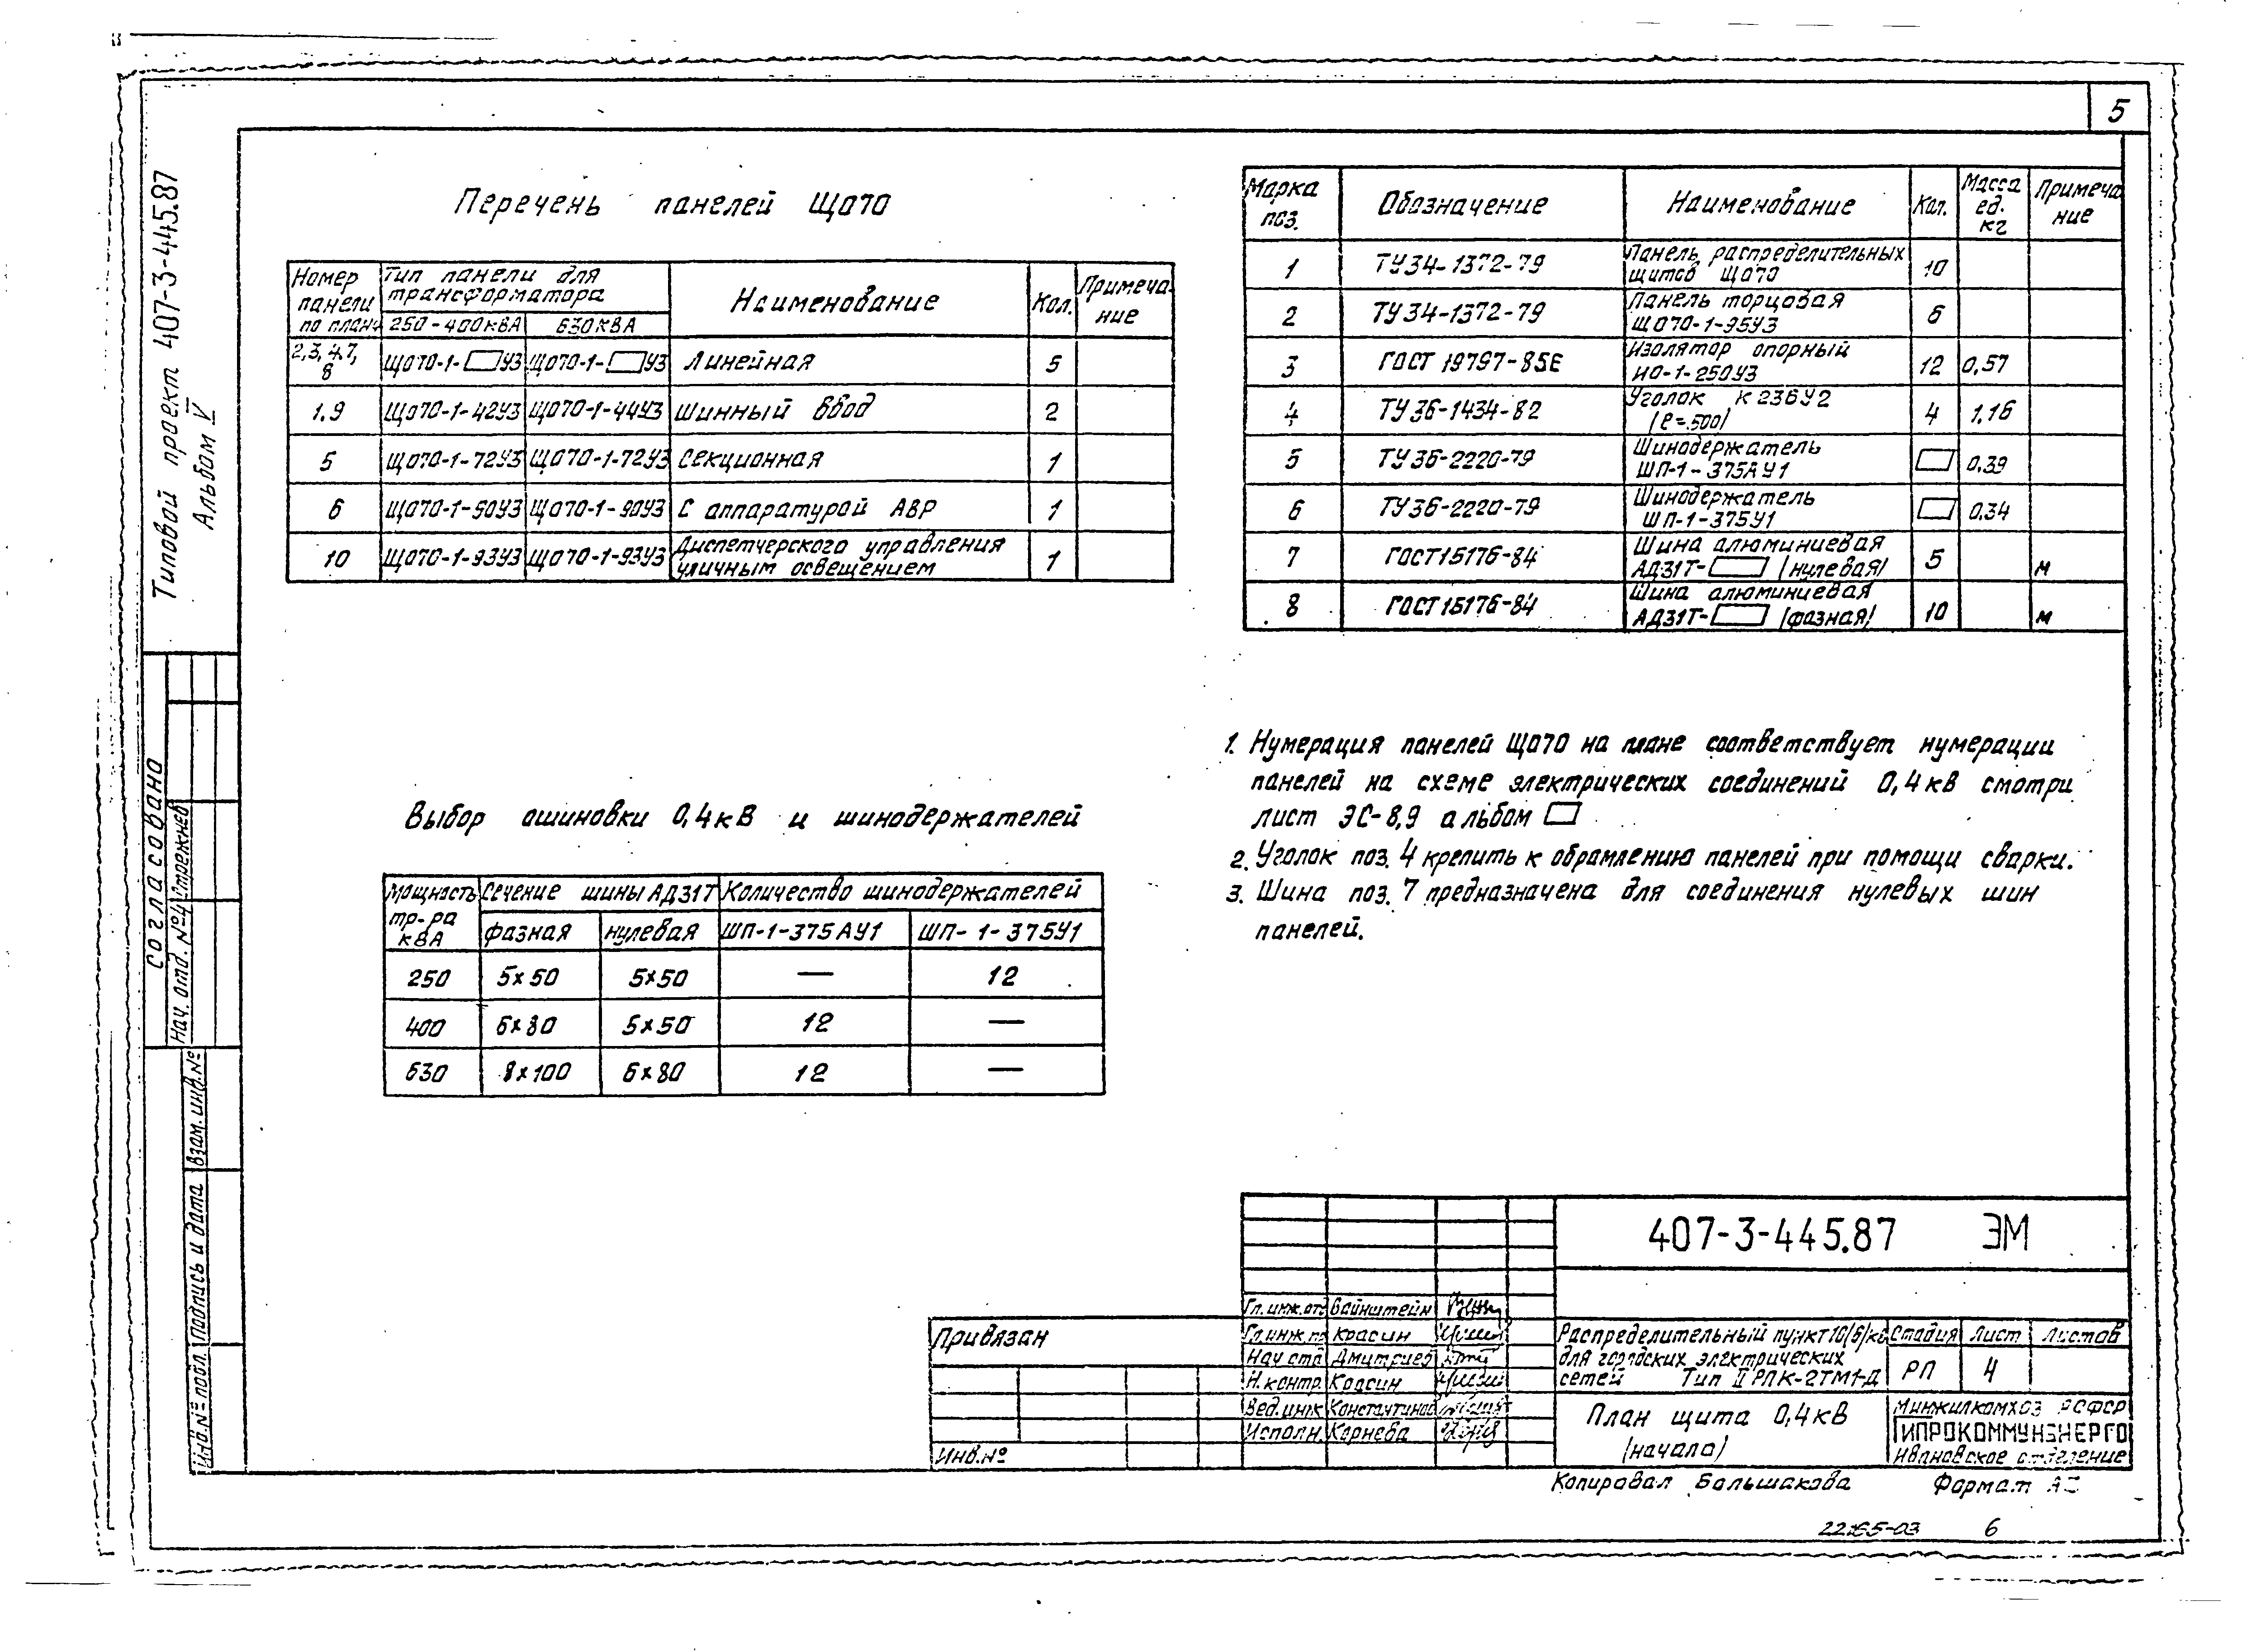 5
Типовой проект 407-3-445.87
Альбом V
Перечень панелей ЩО70
Номер панели по плану | Тип панели для трансформатора | Наименование | Кол. | Примечание
250-400кВА | 630кВА
2,3,4,7,8 | ЩО70-1-▭У3 | ЩО70-1-▭У3 | Линейная | 5
1.9 | ЩО70-1-42У3 | ЩО70-1-44У3 | Шинный ввод | 2
5 | ЩО70-1-72У3 | ЩО70-1-72У3 | Секционная | 1
6 | ЩО70-1-90У3 | ЩО70-1-90У3 | С аппаратурой АВР | 1
10 | ЩО70-1-93У3 | ЩО70-1-93У3 | Диспетчерского управления уличным освещением | 1
Марка поз. | Обозначение | Наименование | Кол. | Масса ед. кг | Примечание
1 | ТУ34-1372-79 | Панель распределительных щитов ЩО70 | 10
2 | ТУ34-1372-79 | Панель торцовая ЩО70-1-95У3 | 6
3 | ГОСТ 19797-85Е | Изолятор опорный ИО-1-250У3 | 12 | 0,57
4 | ТУ36-1434-82 | Уголок К236У2 /ℓ=500/ | 4 | 1,16
5 | ТУ36-2220-79 | Шинодержатель ШП-1-375АУ1 | ▭ | 0,39
6 | ТУ36-2220-79 | Шинодержатель ШП-1-375У1 | ▭ | 0.34
7 | ГОСТ15176-84 | Шина алюминиевая АД31Т-▭ /нулевая/ | 5 | м
8 | ГОСТ15176-84 | Шина алюминиевая АД31Т-▭ /фазная/ | 10 | м
1. Нумерация панелей ЩО70 на плане соответствует нумерации
панелей на схеме электрических соединений 0,4кВ смотри
лист ЭС-8,9 альбом ▭
2. Уголок поз. 4 крепить к обрамлению панелей при помощи сварки.
3. Шина поз. 7 предназначена для соединения нулевых шин
панелей.
Выбор ошиновки 0,4кВ и шинодержателей
Мощность тр-ра кВА | Сечение шины АД31Т | Количество шинодержателей
фазная | нулевая | ШП-1-375АУ1 | ШП-1-375У1
250 | 5х50 | 5х50 | — | 12
400 | 6х80 | 5х50 | 12 | —
630 | 8х100 | 6х80 | 12 | —
Согласовано
Нач. отд. №4
Взам. инв.№
Подпись и дата
Инв.№ подл.
407-3-445.87 ЭМ
Привязан
Инв.№
Гл.инж.отд Вайнштейн
Гл.инж.пр Красин
Нач отд Дмитриев
Н.контр. Красин
Вед.инж Константинов
Исполн. Корнева
Распределительный пункт 10/6/кв
для городских электрических
сетей Тип II РПК-2ТМ1-Д
Стадия | Лист | Листов
РП | 4
План щита 0,4кВ
/начало/
Минжилкомхоз РСФСР
ГИПРОКОММУНЭНЕРГО
Ивановское отделение
Копировал Большакова Формат
22165-03 6